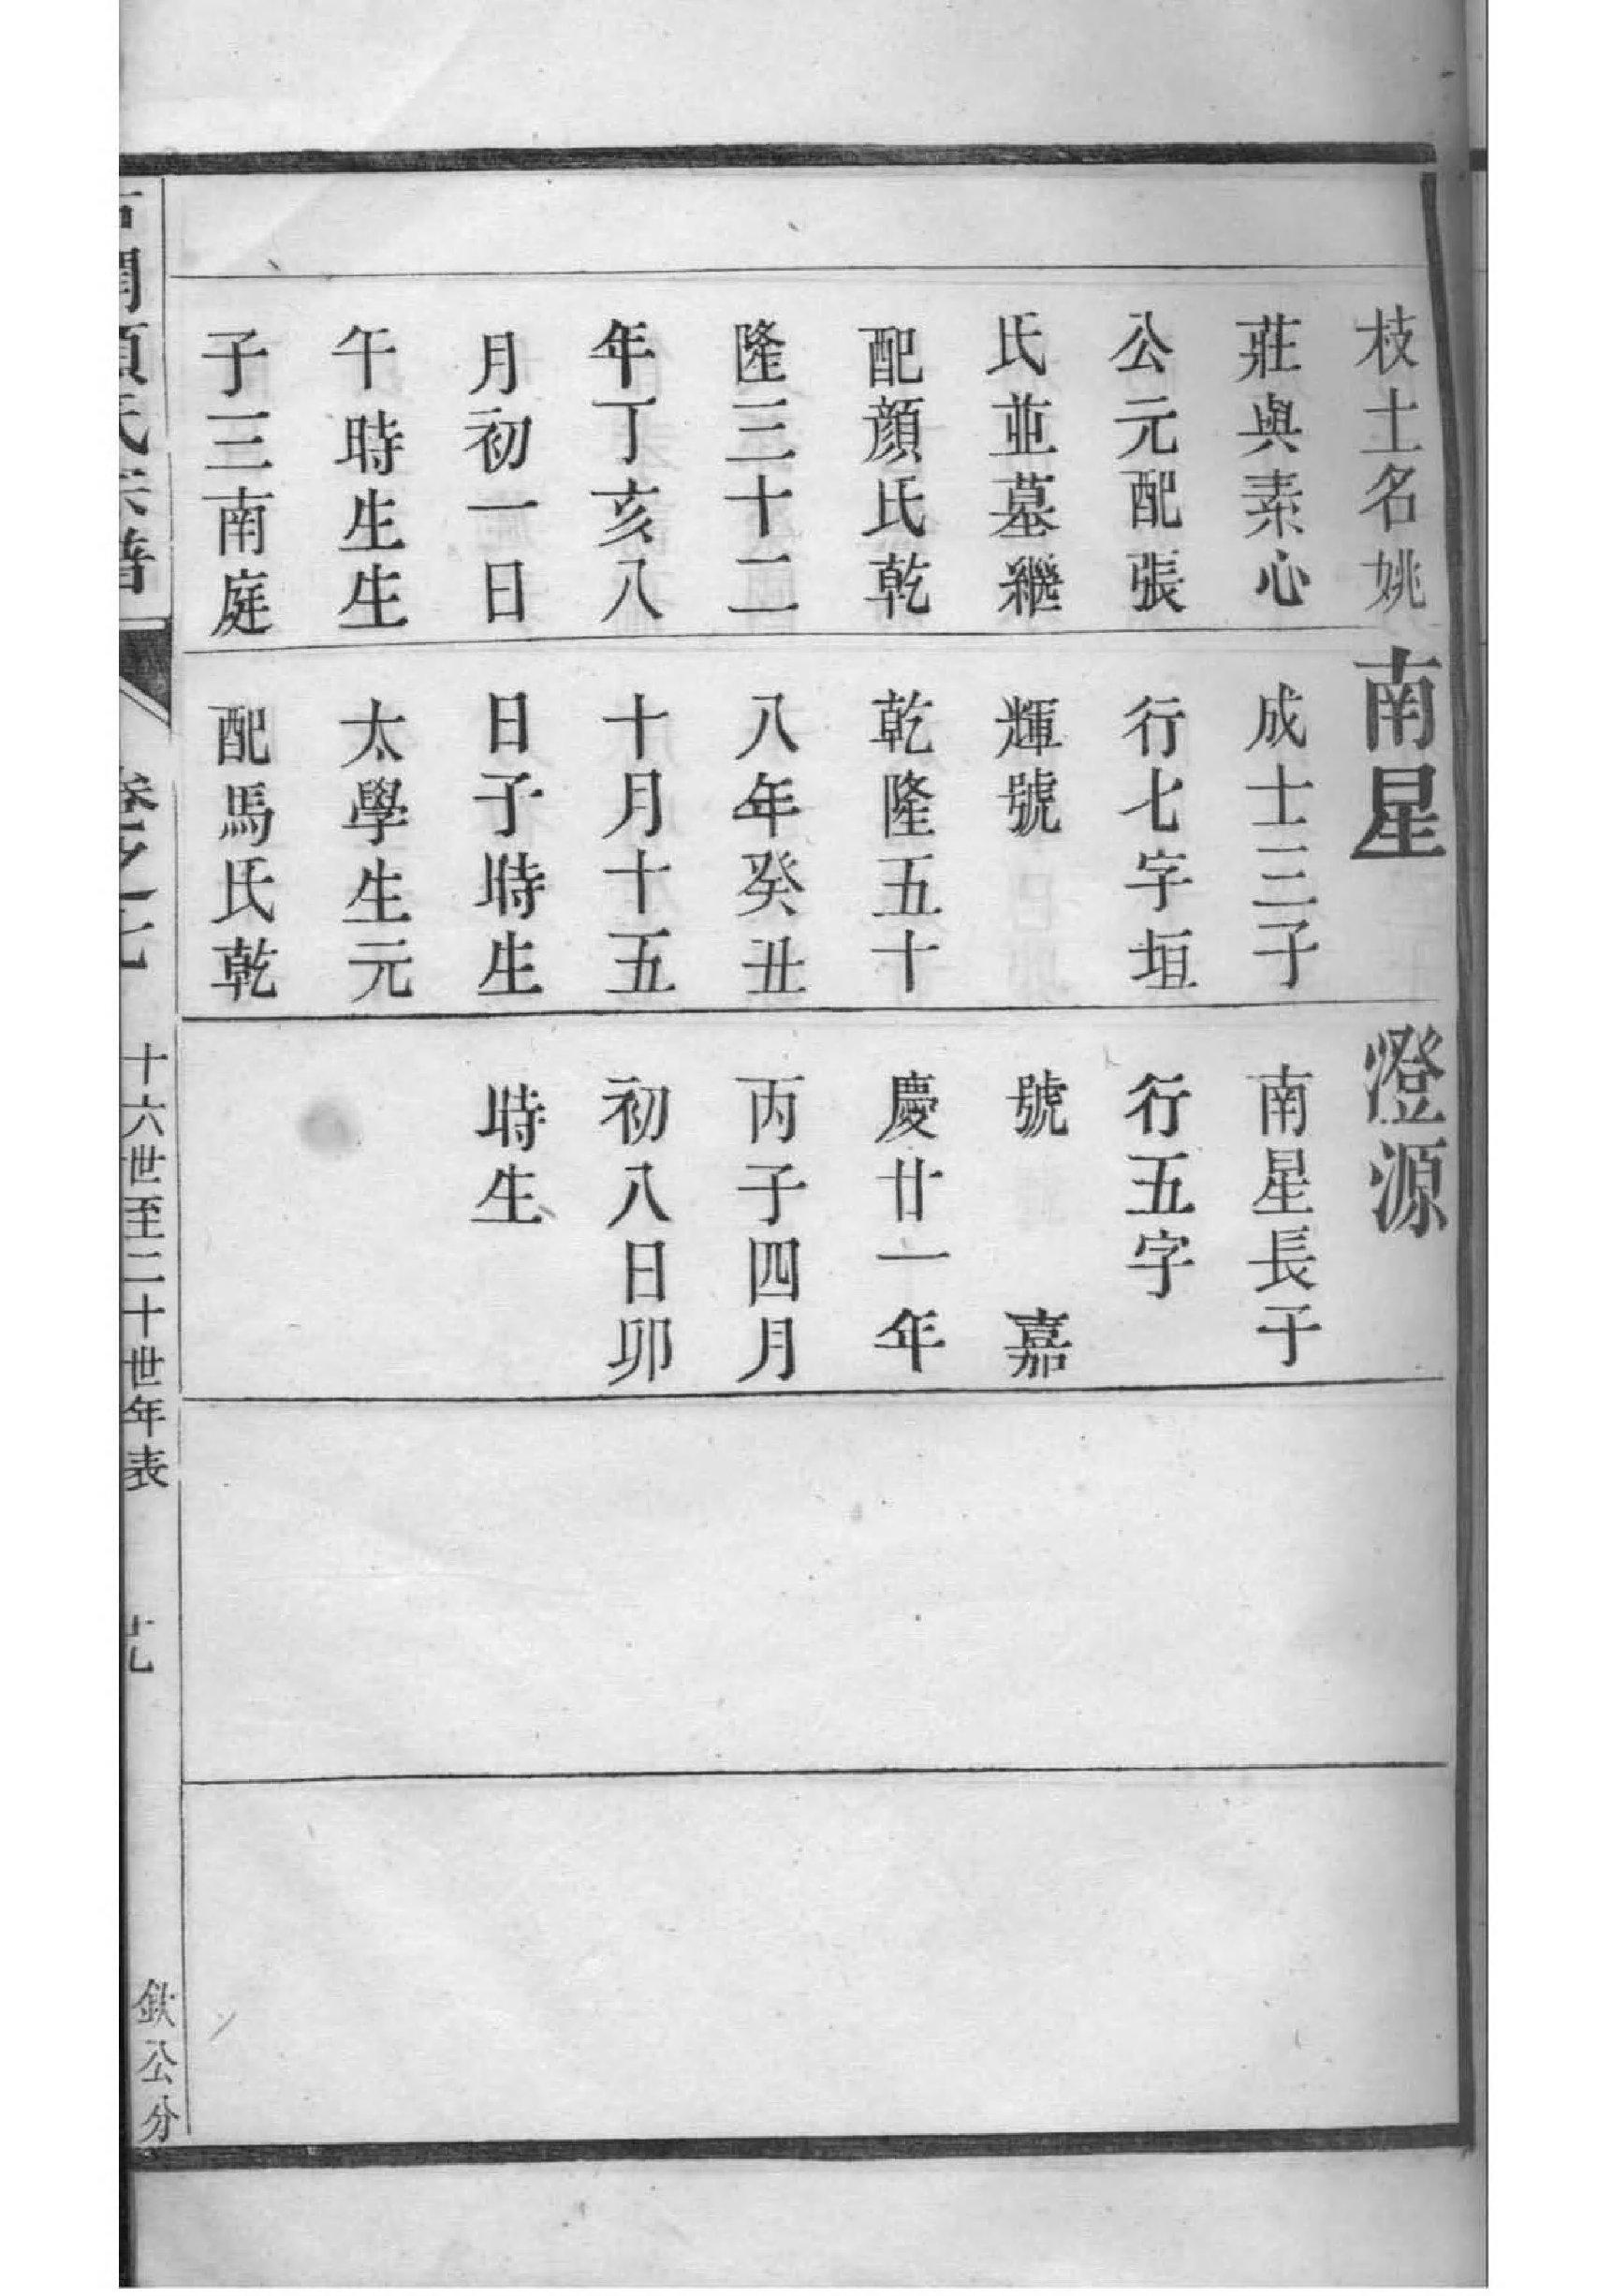 枝土名姚
莊與素心
公元配張
氏並墓繼
配顔氏乾
隆三十二
年丁亥八
月初一日
午時生生
子三南庭
南星
成士三子
行七字垣
輝號
乾隆五十
八年癸丑
十月十五
日子時生
太學生元
配馬氏乾
澄源
南星長子
行五字
號　嘉
慶廿一年
丙子四月
初八日卯
時生
氏宗譜
卷之七
十六世至二十世年表
欽公分